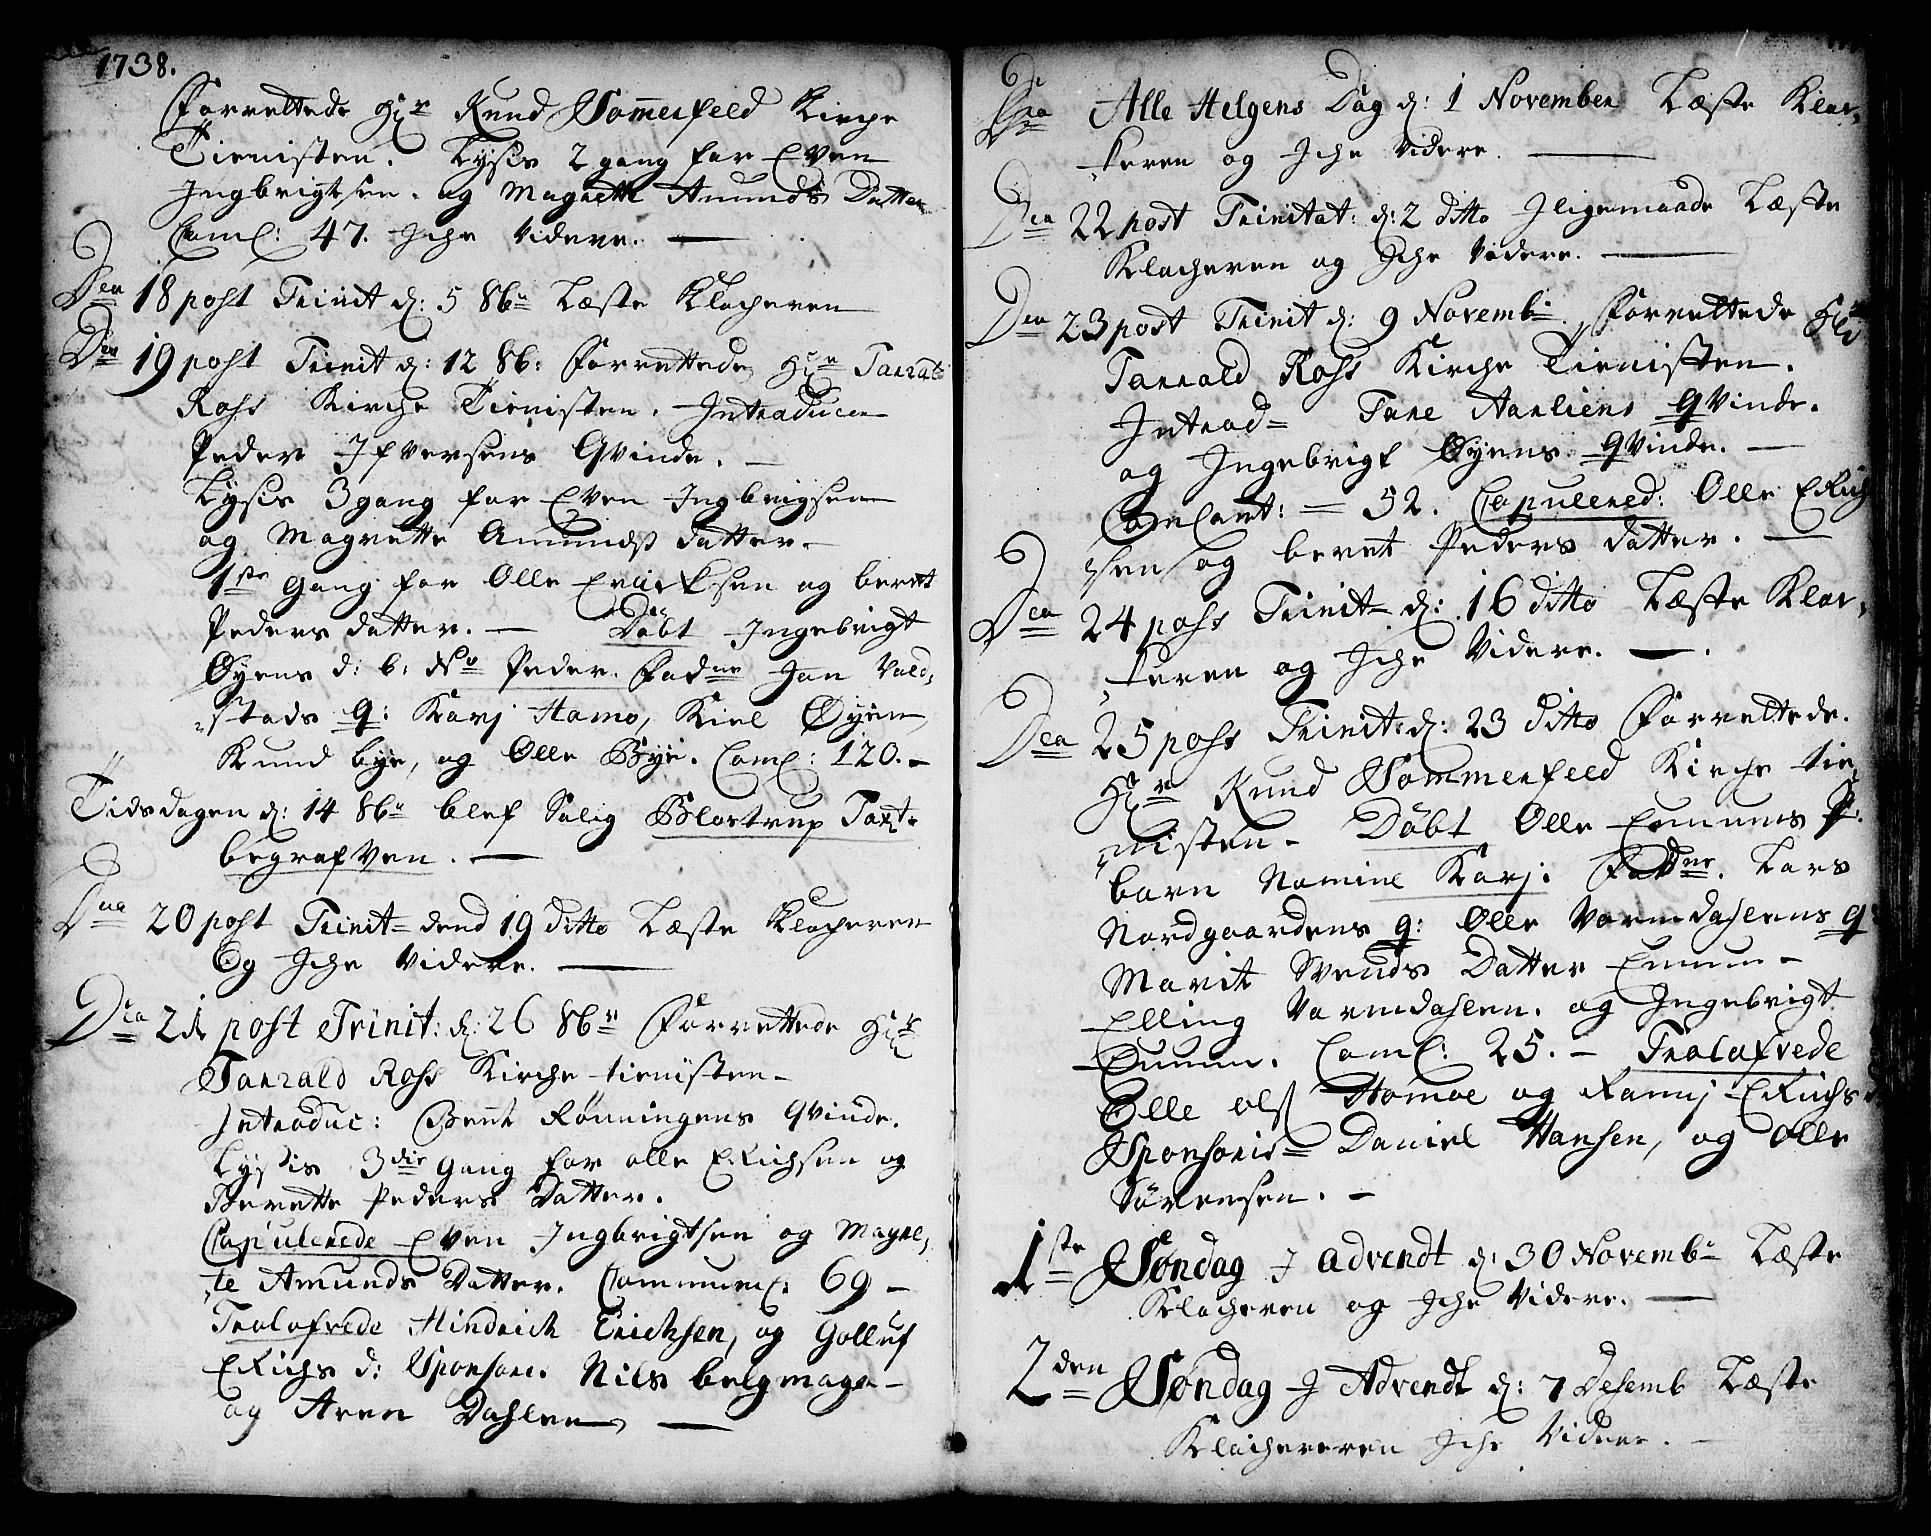 1738.
Forrettede Hr Knud Somerfeld Kirche
Tienisten. Lysis 2 gang for Even
Ingbrigtsen. og Magrette Amunds Datter
Com: 47. Iche Videre. —
Dca 18 post Trinit d: 5 8br Læste Klocheren
Dca 19 post Trinit d: 12 8b: Forrettede Hr Tarrald
Ross Kirche Tienisten. Introducer
Peder Ifversens Qvinde. —
Lysis 3 gang for Even Ingbrigsen
og Magrette Amunds datter.
1ste Gang for Olle Erricksen og beret
Peders datter. — Döbt Ingebrigt
Øyens d: b: No Peder. Fadne Jon Vald„
„stads q: Karj Hamo, Kiel Øyen
Knud bye, og Olle Bye. Com: 120. —
Tidsdagen d: 14 8br blef Salig Blostrup Taxt.
begrafven. —
Dca 20 post Trinit= dend 19 ditto Læste Klocheren
Og Iche Videre. —
Dca 21 post Trinit: d: 26 8br Forrettede Hr
Tarrald Ross Kirche tienisten —
Introduc: Bent Rönningens Qvinde.
Lysis 3die Gang for olle ERichsen og
Berette Peders Datter.
Copulerede Even Ingbrigtsen og Magre„
„te Amunds Datter. Communic: 69 —
Trolofvede Hindrich Erichsen, og Golluf
ERichs d: Sponsore. Nils belgmager
og Aren Dahlen —
Dca Alle Helgens Dag d: 1 November Læste Kloc„
„keren og Iche Videre. —
Dca 22 post Trinitat: d: 2 ditto Iligemaade Læste
Klocheren og Iche Videre. —
Dca 23 post Trinit d: 9 Novembr. Forrettede Hr
Tarrald Ross Kirche Tienisten.
Introd= Tare Aarliens Qvinde.
og Ingebrigt Øyens Qvinde. —
Comcant: = 52. Copulered: Olle ERich
sen og beret Peders datter. —
Dca 24 post Trinit= d: 16 ditto Læste Kloc„
„keren og Iche Videre. —
Dca 25 post Trinit: d: 23 ditto Forrettede.
Hr Knud Sommerfeld Kirche tie„
„nisten. Döbt Olle P:
barn Nomine Karj. Fadne. Lars
Nordgaardens q: Olle Vormdahlens q
Marit Svends Datter
Elling Vormdahlen. og Ingebrigt
Com: 25. — Trolofvede
Olle ols Hamoe og Rannj ERichs d
Sponsoris= Daniel Hansen, og Olle
Sörensen. —
1ste Søndag I advendt d: 30 Novembr Læste
Klocheren og Iche Videre. —
2den Søndag I Advendt d: 7 Desemb Læste
Klochereren Iche Videre. —